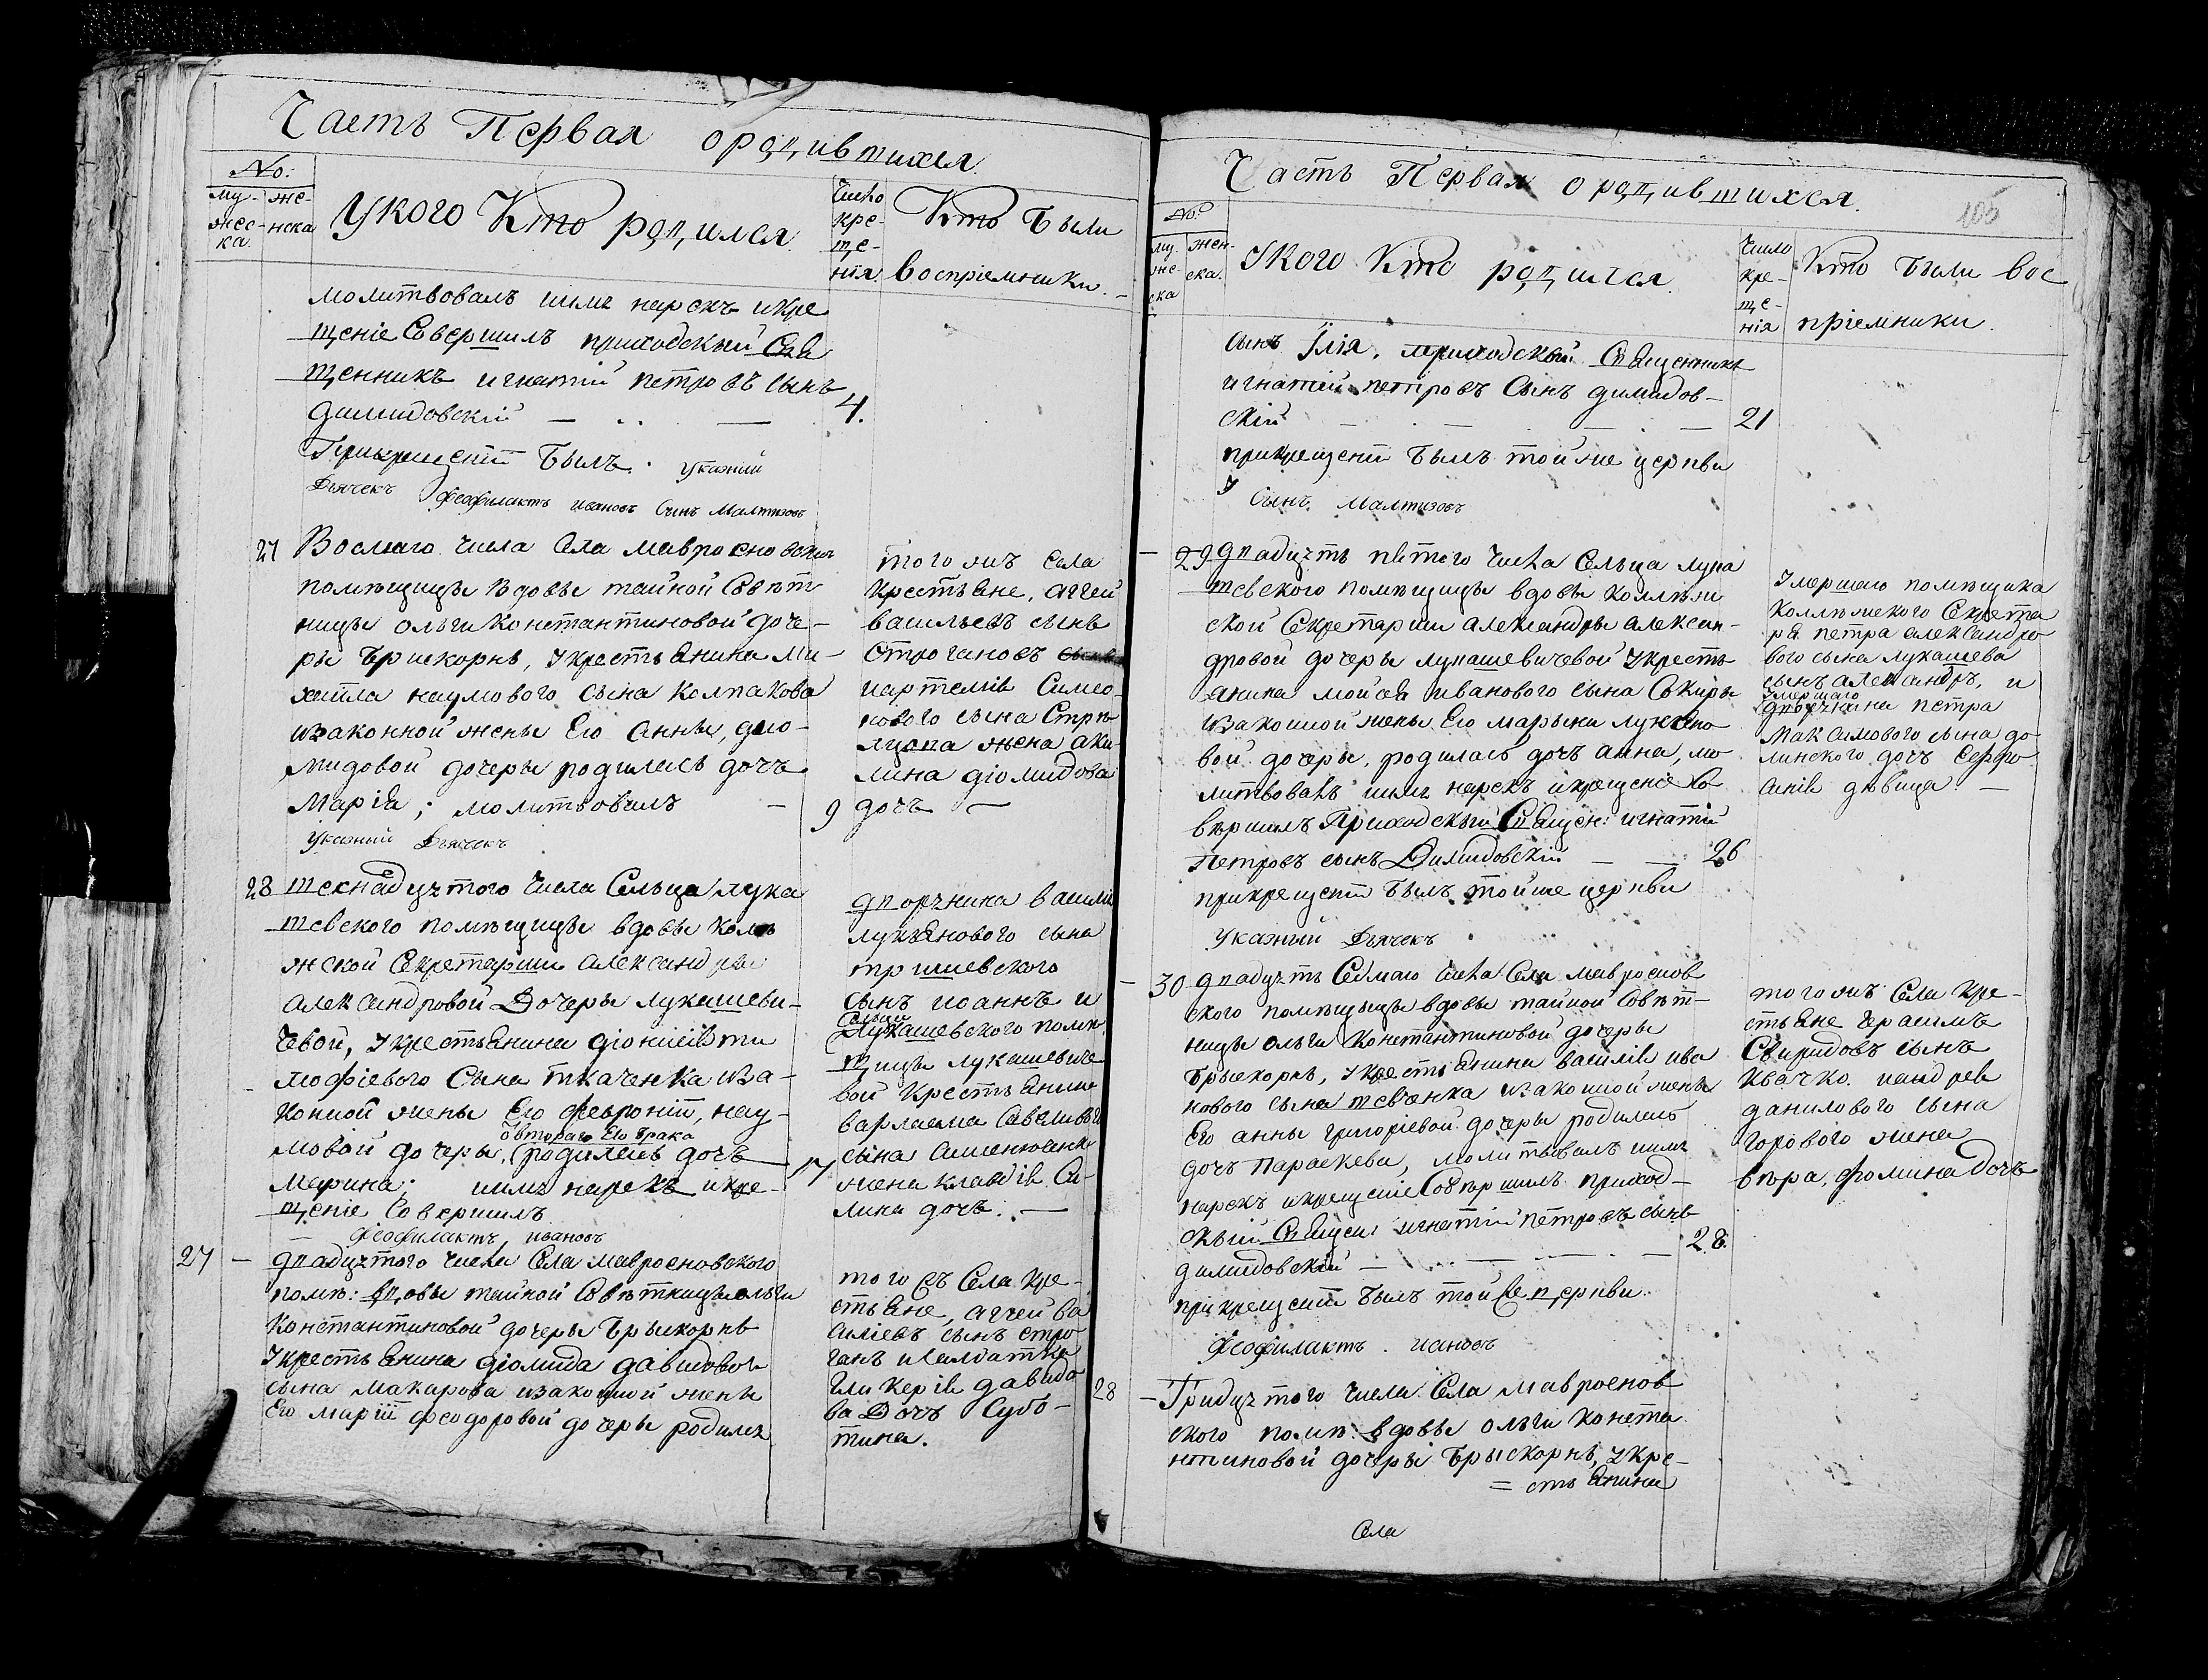 Часть Первая о родившихся.
No:
му-
жес-
ка.
же-
нска
У кого Кто родился.
Число
кре-
ще-
нїя.
Кто были
воспрїемники. -
молитвовалъ имя нарекъ и кре
щенїе Совершилъ приходскый Свя
щенникъ игнатїй петровъ сынъ
димидовскїй — . . — 4.
При крещенїи былъ. указный
Дьячекъ Феофилактъ ивановъ Сынъ Малтизовъ
27 Восмаго числа Села мавросновския
помѣщицы вдовы тайной Совѣт
ницы ольги константиновой доче-
ры Брискорнъ, у крестьянина ми-
хаила наумового сына колпакова
изаконной жены Его Анны, дїо-
мидовой дочеры родилась дочъ
Марїя; молитвовалъ — 9
указный Дьячекъ
того жъ села
крестьяне, аггей
васильевъ сынъ
строгановъ
и артемїя Симео-
нового сына Стрѣ
лцова жена аки-
лина дїомидова
дочъ —
28 шеснадцятого числа Сельца лука
шевского помѣщицы вдовы колѣ
жской Секретарши александры
александровой Дочеры лукашеви-
чевой, у крестьянина дїонисїя ти
мофїевого Сына ткаченка иза-
конной жены Его февронїи, нау-
второго Его брака
мовой дочеры, родилась дочъ 17
Марина; имя нарекъ и кре-
щенїе Совершилъ
Феофилактъ ивановъ
дворжника василя
лукьянового сына
тришевского
сынъ иоаннъ и
сельца
Лукашевского помѣ
щицы лукашевиче
вой крестьянина
варлаама Савелїевого
сына Сименютенка
жена клавдїя Си-
лина дочъ. —
27 — двадцятого числа Села мавросновского
помѣ: вдовы тайной Совѣтницы ольги
константиновой дочеры Брыскорнъ
у крестьянина дїомида давидового
сына макарова изаконной жены
Его марїи феодоровой дочеры родилъ
того жъ Села кре-
стьяне, аггей ва
силїевъ сынъ стро
ганъ и солдатка
гликерїя давидо
ва Дочъ Субо-
тина.
Часть Первая о родившихся.
105
No:
му.
же
ска
жен-
ска.
У кого Кто родился.
Число
кре-
ще-
нїя
Кто были вос
прїемники.
сынъ Їлїя, приходскый Священникъ
игнатїй петровъ Сынъ димидов-
скїй — . — . — . — 21
прикрещенїи былъ той же церкви
Сынъ. Малтизовъ
— 29 двадцять пятого числа Сельца лука
шевского помѣщицы вдовы коллѣж
ской Секретарши александры алексан-
дровой дочеры лукашевичевой у кресть
янина мойсея иванового сына Сокиры
изаконной жены Его марыны лукяно
вой дочеры, родилась дочъ анна, мо
литвовалъ имя нарекъ и крещенїе Со
вершилъ Приходскый Священ: игнатїй
Петровъ сынъ Димидовскїй — — 26
прикрещенїи былъ той же церкви
указный Дьячекъ
умершаго помѣщика
коллѣжского Секрета
ря петра александро
вого сына лукашева
сынъ александръ, и
умершаго
дворжнина петра
максимового сына до
линского дочъ Серфи
анїя дѣвица —
— 30 двадцять Седмаго числа Села мавроснов
ского помѣщицы вдовы тайной Совѣт-
ницы ольги константиновой дочеры
Брыскорнъ, у крестьянина василїя ива
нового сына шевченка изаконной жены
Его анны григорїевой дочеры родилась
дочъ Параскева, молитвовалъ имя
нарекъ и крещенїе Совершилъ приход-
скый Священ: игнатїй петровъ сынъ
димидовскїй — — — — 28.
при крещенїи былъ той же церкви.
Феофилактъ . ивановъ
того жъ Села кре-
стьяне герасимъ
Свиридовъ сынъ
квачко. и андрея
данилового сына
горового жена
вѣра, фомина дочъ
28 — Тридцятого числа Села мавроснов
ского помѣ: вдовы ольги конста
нтиновой дочеры Брыскорнъ, у кре-
= стьянина
Села